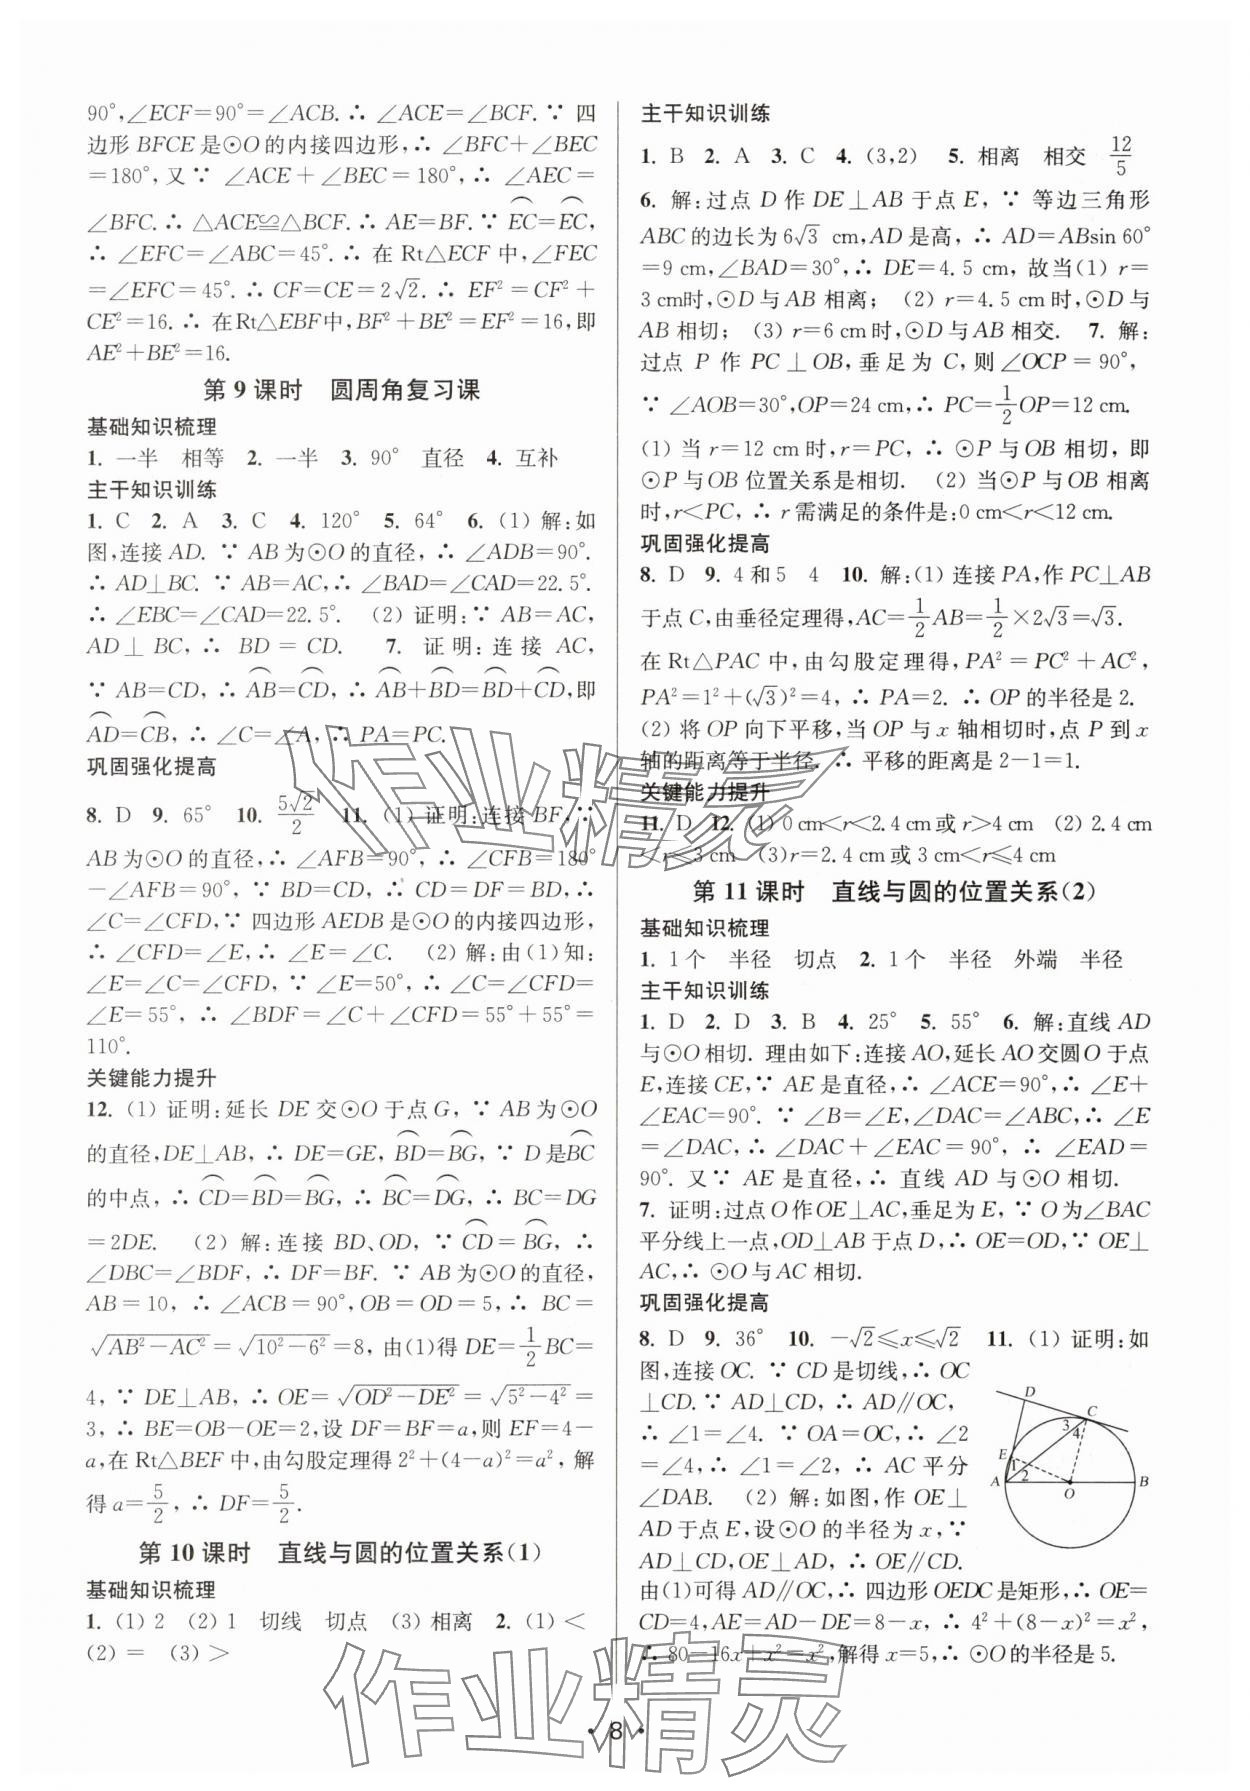 90°,∠ECF=90°=∠ACB.∴ ∠ACE=∠BCF.∵ 四
边形 BFCE 是⊙O的内接四边形,∴ ∠BFC+∠BEC
=180°,又∵ ∠ACE+∠BEC=180°,∴ ∠AEC=
∠BFC.∴ △ACE≌△BCF.∴ AE=BF.∵ EC⌒=EC⌒,
∴ ∠EFC=∠ABC=45°.∴ 在 Rt△ECF 中,∠FEC
=∠EFC=45°.∴ CF=CE=2√2.∴ EF²=CF²+
CE²=16.∴ 在Rt△EBF中,BF²+BE²=EF²=16,即
AE²+BE²=16.
第 9 课时 圆周角复习课
基础知识梳理
1. 一半 相等 2. 一半 3. 90° 直径 4. 互补
主干知识训练
1. C 2. A 3. C 4. 120° 5. 64° 6. (1) 解:如
图,连接 AD. ∵ AB 为⊙O 的直径,∴ ∠ADB=90°.
∴ AD⊥BC. ∵ AB=AC,∴ ∠BAD=∠CAD=22.5°.
∴ ∠EBC=∠CAD=22.5°. (2) 证明:∵ AB=AC,
AD⊥BC,∴ BD=CD. 7. 证明:连接 AC,
∵ AB=CD,∴ AB⌒=CD⌒,∴ AB⌒+BD⌒=BD⌒+CD⌒,即
AD⌒=CB⌒,∴ ∠C=∠A,∴ PA=PC.
巩固强化提高
8. D 9. 65° 10. 5√2/2 11. (1) 证明:连接 BF,∵
AB为⊙O 的直径,∴ ∠AFB=90°,∴ ∠CFB=180°
-∠AFB=90°,∵ BD=CD,∴ CD=DF=BD,∴
∠C=∠CFD,∵ 四边形 AEDB 是⊙O的内接四边形,
∴ ∠CFD=∠E,∴ ∠E=∠C. (2) 解:由(1)知:
∠E=∠C=∠CFD,∵ ∠E=50°,∴ ∠C=∠CFD=
∠E=55°,∴ ∠BDF=∠C+∠CFD=55°+55°=
110°.
关键能力提升
12. (1) 证明:延长 DE 交⊙O 于点 G,∵ AB 为⊙O
的直径,DE⊥AB,∴ DE=GE,BD⌒=BG⌒,∵ D是BC⌒
的中点,∴ CD⌒=BD⌒=BG⌒,∴ BC⌒=DG⌒,∴ BC=DG
=2DE. (2) 解:连接 BD、OD,∵ CD⌒=BG⌒,∴
∠DBC=∠BDF,∴ DF=BF.∵ AB为⊙O的直径,
AB=10,∴ ∠ACB=90°,OB=OD=5,∴ BC=
√(AB²-AC²)=√(10²-6²)=8,由(1)得 DE=1/2BC=
4,∵ DE⊥AB,∴ OE=√(OD²-DE²)=√(5²-4²)=
3,∴ BE=OB-OE=2,设 DF=BF=a,则 EF=4-
a,在 Rt△BEF 中,由勾股定理得 2²+(4-a)²=a²,解
得a=5/2,∴ DF=5/2.
第 10 课时 直线与圆的位置关系(1)
基础知识梳理
1. (1) 2 (2) 1 切线 切点 (3) 相离 2. (1) <
(2) = (3) >
主干知识训练
1. B 2. A 3. C 4. (3,2) 5. 相离 相交 12/5
6. 解:过点 D 作 DE⊥AB 于点 E,∵ 等边三角形
ABC 的边长为 6√3 cm,AD 是高,∴ AD=ABsin 60°
=9 cm,∠BAD=30°,∴ DE=4.5 cm,故当(1) r=
3 cm时,⊙D 与 AB 相离;(2) r=4.5 cm 时,⊙D 与
AB 相切;(3) r=6 cm 时,⊙D 与 AB 相交. 7. 解:
过点 P 作 PC⊥OB,垂足为 C,则∠OCP=90°,
∵ ∠AOB=30°,OP=24 cm,∴ PC=1/2OP=12 cm.
(1) 当 r=12 cm 时,r=PC,∴ ⊙P 与 OB 相切,即
⊙P 与 OB 位置关系是相切. (2) 当⊙P 与 OB 相离
时,r<PC,∴ r 需满足的条件是:0 cm<r<12 cm.
巩固强化提高
8. D 9. 4 和 5 4 10. 解:(1) 连接 PA,作 PC⊥AB
于点 C,由垂径定理得,AC=1/2AB=1/2×2√3=√3.
在 Rt△PAC 中,由勾股定理得,PA²=PC²+AC²,
PA²=1²+(√3)²=4,∴ PA=2. ∴ OP 的半径是 2.
(2) 将 OP 向下平移,当 OP 与 x 轴相切时,点 P 到 x
轴的距离等于半径. ∴ 平移的距离是 2-1=1.
关键能力提升
11. D 12. (1) 0 cm<r<2.4 cm或 r>4 cm (2) 2.4 cm
<r≤3 cm (3)r=2.4 cm或 3 cm<r≤4 cm
第 11 课时 直线与圆的位置关系(2)
基础知识梳理
1. 1个 半径 切点 2. 1个 半径 外端 半径
主干知识训练
1. D 2. D 3. B 4. 25° 5. 55° 6. 解:直线 AD
与⊙O 相切. 理由如下:连接 AO,延长 AO 交圆 O 于点
E,连接 CE,∵ AE 是直径,∴ ∠ACE=90°,∴ ∠E+
∠EAC=90°. ∵ ∠B=∠E,∠DAC=∠ABC,∴ ∠E
=∠DAC,∴ ∠DAC+∠EAC=90°,∴ ∠EAD=
90°. 又∵ AE 是直径,∴ 直线 AD 与⊙O 相切.
7. 证明:过点O作OE⊥AC,垂足为E,∵ O为∠BAC
平分线上一点,OD⊥AB于点D,∴ OE=OD,∵ OE⊥
AC,∴ ⊙O与AC 相切.
巩固强化提高
8. D 9. 36° 10. -√2≤x≤√2 11. (1) 证明:如
图,连接OC. ∵ CD 是切线,∴ OC
⊥CD.∵ AD⊥CD,∴ AD∥OC,
∴ ∠1=∠4. ∵ OA=OC,∴ ∠2
=∠4,∴ ∠1=∠2,∴ AC 平分
∠DAB. (2) 解:如图,作 OE⊥
AD 于点 E,设⊙O 的半径为 x,∵
AD⊥CD,OE⊥AD,∴ OE∥CD.
由(1)可得 AD∥OC,∴ 四边形 OEDC 是矩形,∴ OE=
CD=4,AE=AD-DE=8-x,∴ 4²+(8-x)²=x²,
∴ 80-16x+x²=x²,解得 x=5,∴ ⊙O 的半径是 5.
D
C
3
4
E
1
2
A
O
B
作业精灵
作业精灵
• 8 •